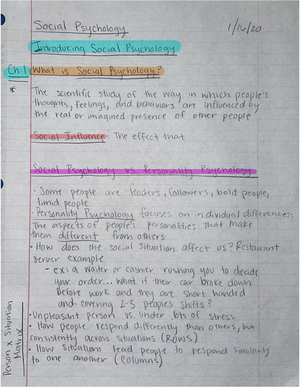 Social Psychology 1/16/20
Introducing Social Psychology
Ch.1 What is Social Psychology?
* The scientific study of the way in which people's
thoughts, feelings, and behaviors are influenced by
the real or imagined presence of other people
Social Influence: The effect that
Social Psychology vs Personality Psychology
· Some people are leaders, followers, bold people,
timid people
· Personality Psychology focuses on individual differences:
The aspects of people's personalities that make
them different from others
· How does the social situation affect us? Restaurant
server example
- ex: a waiter or cashier rushing you to decide
your order... what if their car broke down
before work and they are short handed
and covering 2-3 people's shifts?
· Unpleasant person vs. under lots of stress
· How people respond differently than others, but
consistently across situations (Rows)
· How situations lead people to respond similarly
to one another (Columns)
Person x Situation
Matrix